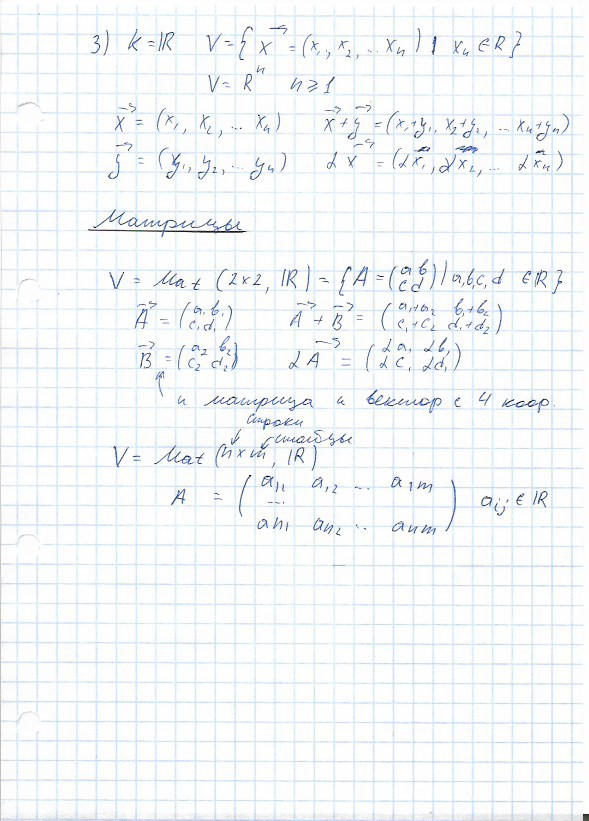 3) K = ℝ V = { x⃗ = (x₁, x₂, ... xₙ) | xₙ ∈ ℝ }
V = Rⁿ n ⩾ 1
x⃗ = (x₁, x₂, ... xₙ) x⃗ + y⃗ = (x₁+y₁, x₂+y₂, ... xₙ+yₙ)
y⃗ = (y₁, y₂, ... yₙ) α x⃗ = (αx₁, αx₂, ... αxₙ)
Матрицы
V = Mat (2×2, ℝ) = { A = (a b; c d) | a,b,c,d ∈ ℝ }
A⃗ = (a₁ b₁; c₁ d₁) A⃗ + B⃗ = (a₁+a₂ b₁+b₂; c₁+c₂ d₁+d₂)
B⃗ = (a₂ b₂; c₂ d₂) αA⃗ = (αa₁ αb₁; αc₁ αd₁)
и матрица и вектор с 4 коор.
строки
столбцы
V = Mat (n×m, ℝ)
A = (a₁₁ a₁₂ ... a₁m; ...; an₁ an₂ ... anm) aᵢⱼ ∈ ℝ